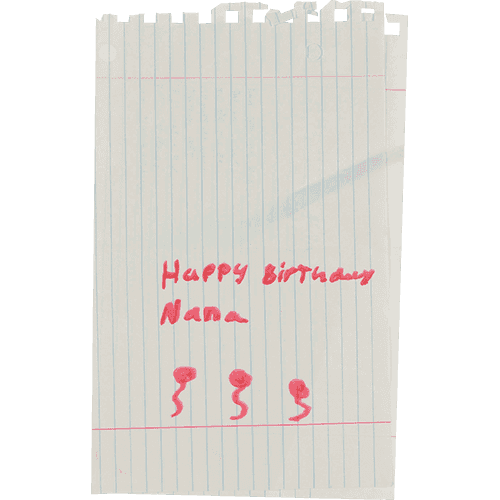 Happy Birthday
Nana